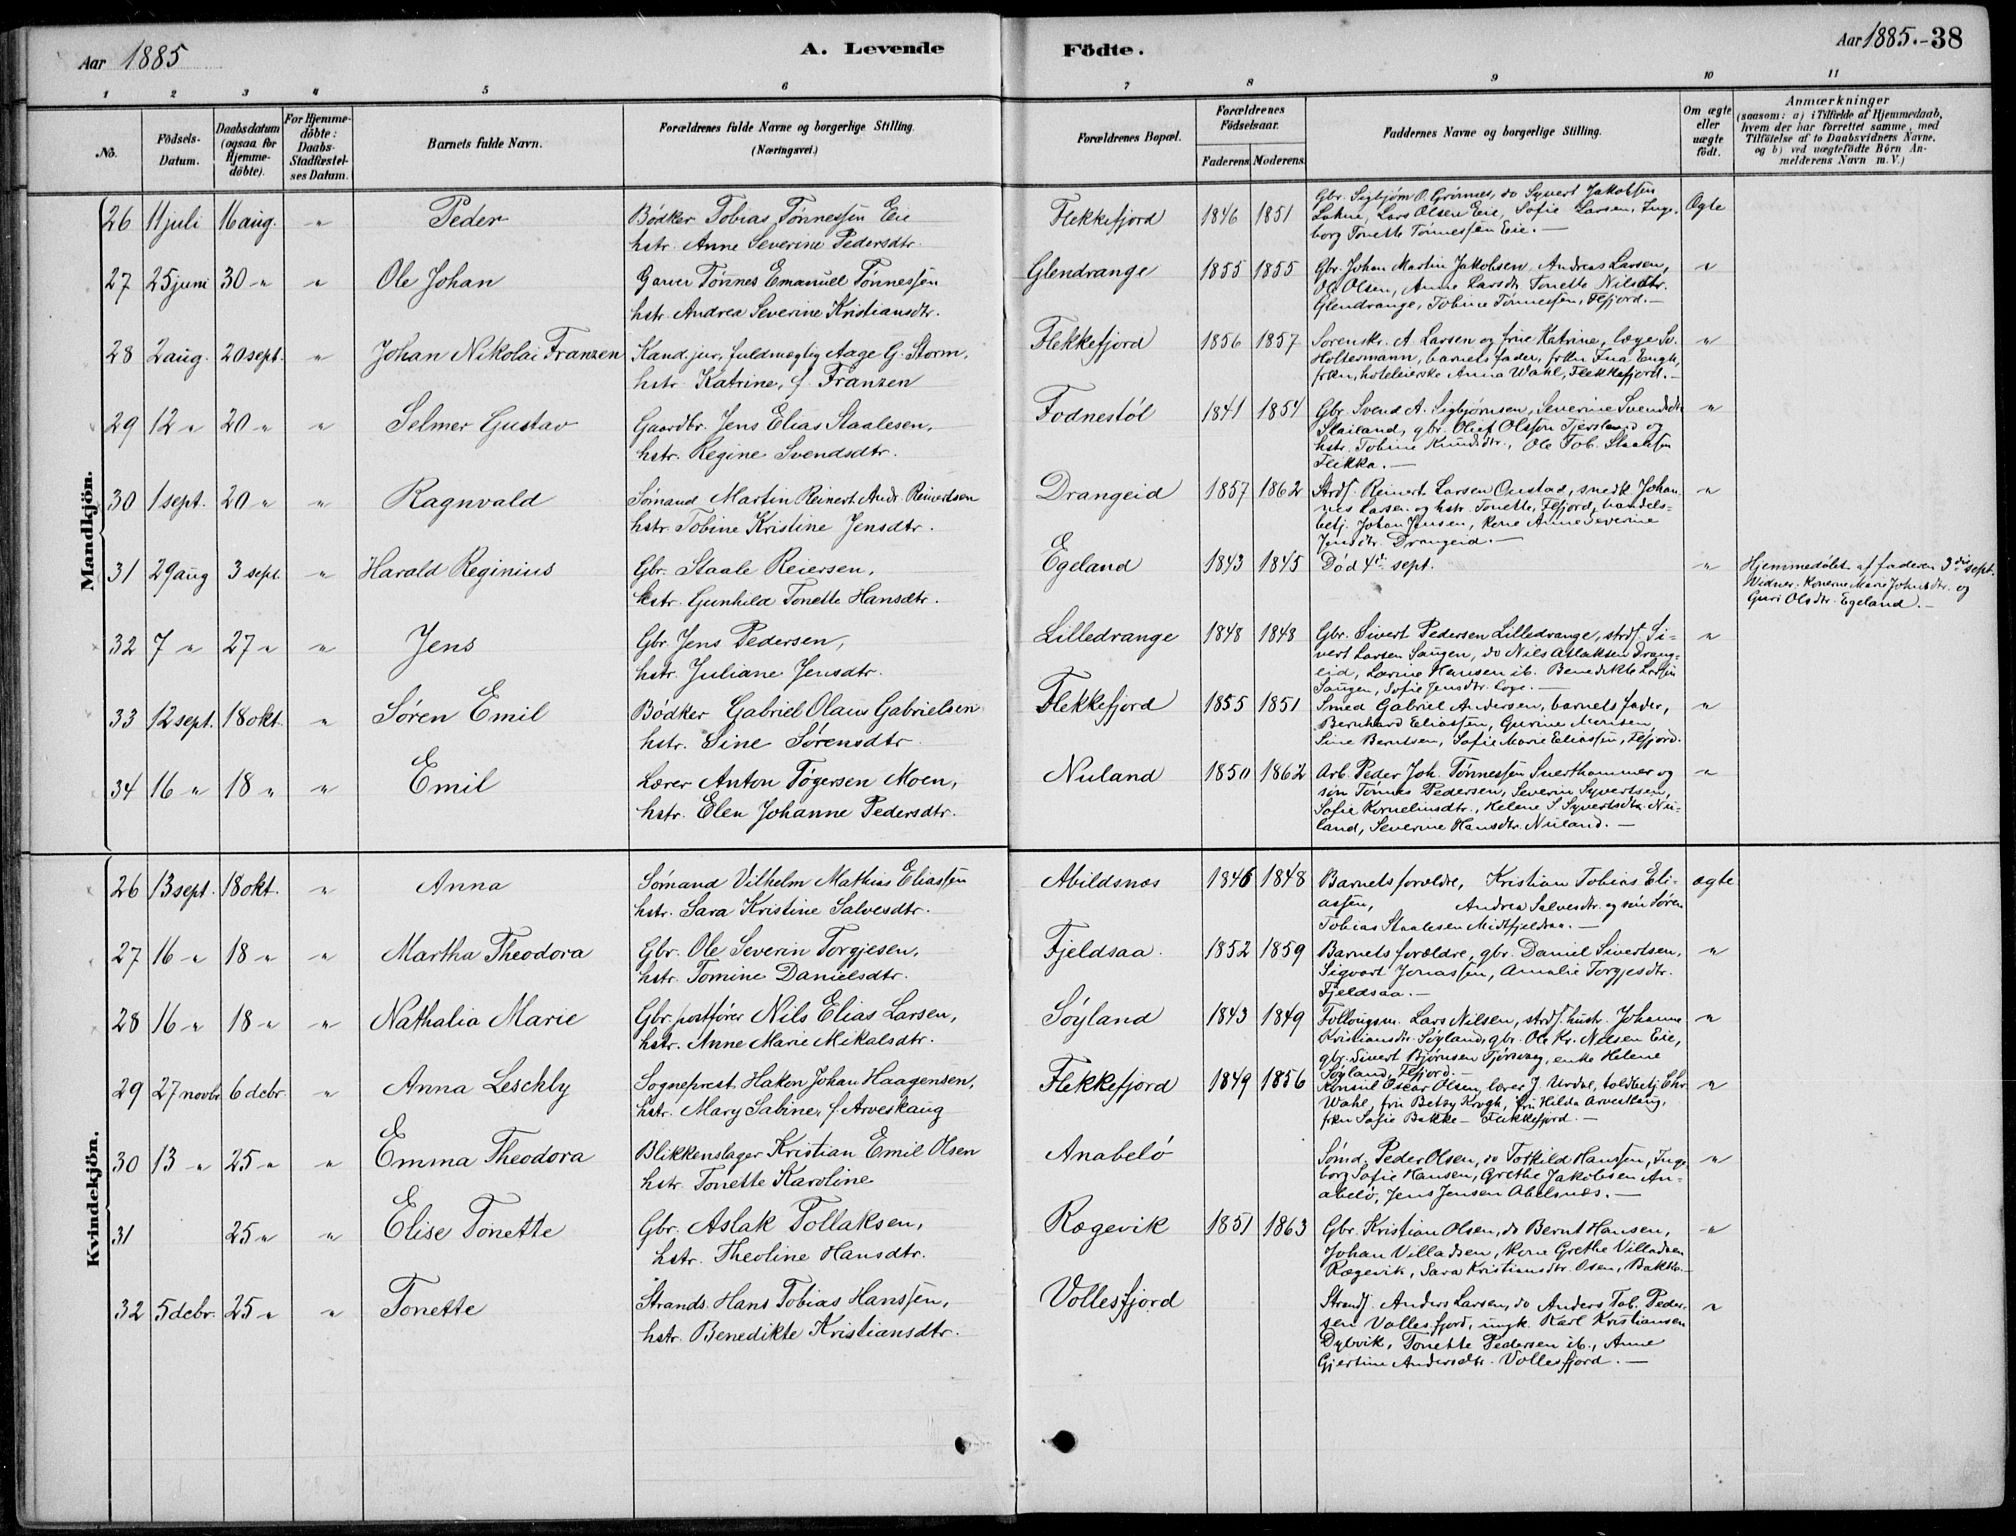 Aar 1885
A. Levende
Födte.
Aar 1885. - 38
1 2 3 4 5 6 7 8 9 10 11
No.
Födsels-Datum.
Daabsdatum (ogsaa for Hjemme-döbte).
For Hjemme-döbte: Daabs-Stadfæstel-ses Datum.
Barnets fulde Navn.
Forældrenes fulde Navne og borgerlige Stilling.
(Næringsvei.)
Forældrenes Bopæl.
Forældrenes Födselsaar.
Faderens. Moderens.
Faddernes Navne og borgerlige Stilling.
Om ægte eller uægte födt.
Anmærkninger
(saasom: a) i Tilfælde af Hjemmedaab, hvem der har forrettet samme, med Tilföielse af to Daabsvidners Navne, og b) ved uægtefödte Börn An-melderens Navn m. V.)
Mandkjön.
26 11 juli 16 aug. " Peder Bødker Tobias Tønnessen Eie Flekkefjord 1846 1851 Gbr. Sigbjørn O. Grimnes, do Syvert Jakobsen Ægte
hstr. Anne Severine Pedersdtr. Lars Olsen Eie, Sofie Larsen, Inge-
borg Tonette Tønnessen Eie. —
27 25 juni 30 " " Ole Johan Garver Tønnes Emanuel Tønnessen Glendrange 1855 1855 Gbr. Johan Martin Jakobsen, Andreas Larsen, "
hstr. Andrea Severine Kristiansdtr. Ole Olsen, Anne Larsdtr. Tonette Nilsdtr.
Glendrange, Tobine Tønnessen, Flfjord. —
28 2 aug. 20 sept. " Johan Nikolai Franzen Kand. jur. fuldmægtig Aage G. Storm, Flekkefjord 1856 1857 Sorenskr. A. Larsen og frue Katrine, læge Sv. "
hstr. Katrine, f. Franzen Holtermann, barnets fader, frkn Engh,
frkn, hoteleierske Anna Wahl, Flekkefjord. —
29 12 " 20 " " Selmer Gustav Gaardbr. Jens Elias Staalesen, Fodnestöl 1841 1854 Gbr. Svend A. Sigbjørnsen, Severine Svendsdtr "
hstr. Regine Svendsdtr. Stailand, gbr. Olief Olsson Tjersland og
hstr. Tobine Knudsdtr., Ole Tob. Staalesen
Flikka. —
30 1 sept. 20 " " Ragnvald Sømand Martin Reinert Andr. Reinertsen Drangeid 1857 1862 Strds. Reinert Larsen Onstad, snedk. Johan- "
hstr. Tobine Kristine Jensdtr. nes Larsen og hstr. Tonette, Flfjord, handels-
betj. Johan Jensen, kone Anne Severine
Jensdtr. Drangeid. —
31 29 aug 3 sept. " Harald Reginius Gbr. Staale Reiersen, Egeland 1843 1845 Død 4de sept. " Hjemmedøbt af faderen 3die sept.
hstr. Gunhild Tonette Hansdtr. Vidner: Konerne Marie Johnsdtr. og
Guri Olsdtr. Egeland. —
32 7 " 27 " " Jens Gbr. Jens Pedersen, Lilledrange 1848 1848 Gbr. Sivert Pedersen Lilledrange, strds. Si- "
hstr. Juliane Jensdtr. vert Larsen Saugen, do Nils Aslaksen Drang-
eid, Lavine Hansen ib. Benedikte Larsen
Saugen, Sofie Jensdtr. Loge. —
33 12 sept. 18 okt. " Søren Emil Bødker Gabriel Olaus Gabrielsen Flekkefjord 1855 1851 Smed Gabriel Andersen, barnets fader, "
hstr. Sine Sørensdtr. Bernhard Eliassen, Gurine Monsen,
Sine Berntsen, Sofie Marie Eliassen, Flfjord.
34 16 " 18 " " Emil Lærer Anton Tøgersen Moen, Nuland 1850 1862 Arb. Peder Joh. Tønnessen Sverthammer og "
hstr. Elen Johanne Pedersdtr. søn Tønnes Pedersen, Severin Syvertsen,
Sofie Korneliusdtr., Helene S Syvertsdtr. Nu-
land, Severine Hansdtr. Nuland. —
Kvindekjön.
26 13 sept. 18 okt. " Anna Sømand Vilhelm Mathias Eliassen Abildsnæs 1846 1848 Barnets forældre, Kristian Tobias Eli- ægte
hstr. Sara Kristine Salvesdtr. assen, Andrea Salvesdtr. og søn Søren
Tobias Staalesen Midtfjeldsaa. —
27 16 " 18 " " Martha Theodora Gbr. Ole Severin Torgjesen, Fjeldsaa. 1852 1859 Barnets forældre, gbr. Daniel Sivertsen, "
hstr. Tomine Danielsdtr. Sigvart Jonassen, Amalie Torgjesdtr.
Fjeldsaa. —
28 16 " 18 " " Nathalia Marie Gbr. postfører Nils Elias Larsen, Søyland 1843 1849 Lars Nilsen, strds. hustr. Johanne "
hstr. Anne Marie Mikalsdtr. Kristiansdtr. Søyland, gbr. Ole Kr. Nilsen Eie,
gbr. Sivert Bjørnsen Tjørsvaag, enke Helene
Søyland, Flfjord. —
29 27 novbr 6 dcbr. " Anna Leschly Sogneprest Hakon Johan Haagensen, Flekkefjord 1849 1856 Konsul Oscar Olsen, lærer J. Urdal, toldbetj. Chr. "
hstr. Mary Sabine, f. Arveskaug Wahl, fru Betzy Krogh, fru Hilda Arveskaug,
frkn Sofie Bakke — Flekkefjord. —
30 13 " 25 " " Emma Theodora Blikkenslager Kristian Emil Olsen Anabelö Sømd. Peder Olsen, do Torkild Hanssen, Inge- "
hstr. Tonette Karoline borg Sofie Hansen, Grethe Jakobsen An-
abelö, Jens Jensen Abelsnæs. —
31 25 " " Elise Tonette Gbr. Aslak Tollaksen, Rægevik 1851 1863 Gbr. Kristian Olsen, do Bernt Hansen, "
hstr. Theoline Hansdtr. Johan Villadsen, kone Grethe Villadsen
Rægevik, Sara Kristiansdtr. Osen, Bakke. —
32 5 dcbr. 25 " " Tonette Strands. Hans Tobias Hanssen, Vollesfjord Strands. Anders Larsen, do Anders Tob. Peder- "
hstr. Benedikte Kristiansdtr. sen Vollesfjord, ungk. Karl Kristiansen
Dybvik, Tonette Pedersen ib., Anne
Gjertine Andersdtr. Vollesfjord. —